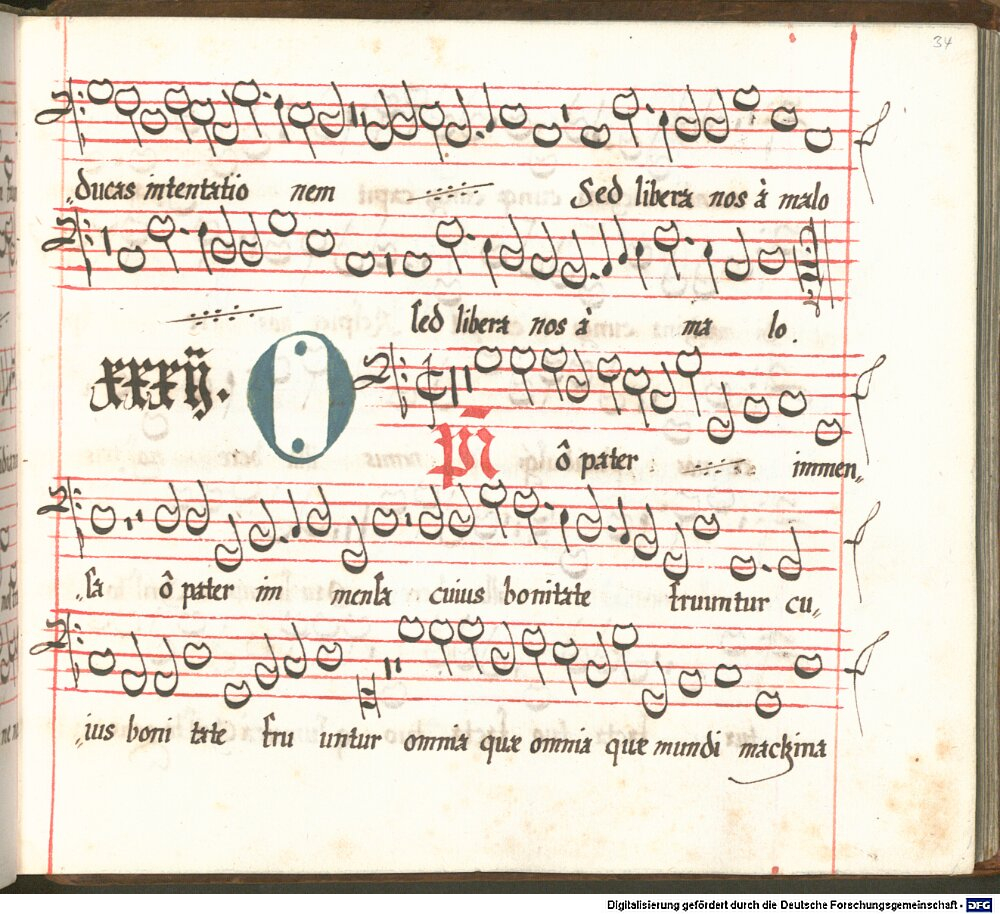 34
„ducas in tentatio nem Sed libera nos à malo
sed libera nos à ma lo.
xxxxij. O
ô pater immen„
„sa ô pater im mensa cuius bonitate fruuntur cu„
„ius boni tate fru untur omnia quæ omnia quæ mundi machina
Digitalisierung gefördert durch die Deutsche Forschungsgemeinschaft - DFG